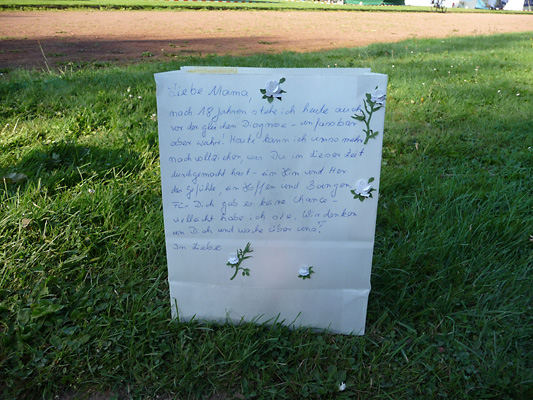 Liebe Mama,
nach 18 Jahren stehe ich heute auch
vor der gleichen Diagnose - unfassbar
aber wahr. Heute kann ich umso mehr
nachvollziehen, was Du in dieser Zeit
durchgemacht hast - ein Hin und Her
der Gefühle, ein Hoffen und Bangen.
Für Dich gab es keine Chance -
vielleicht habe ich sie. Wir denken
an Dich und wache über uns!
In Liebe